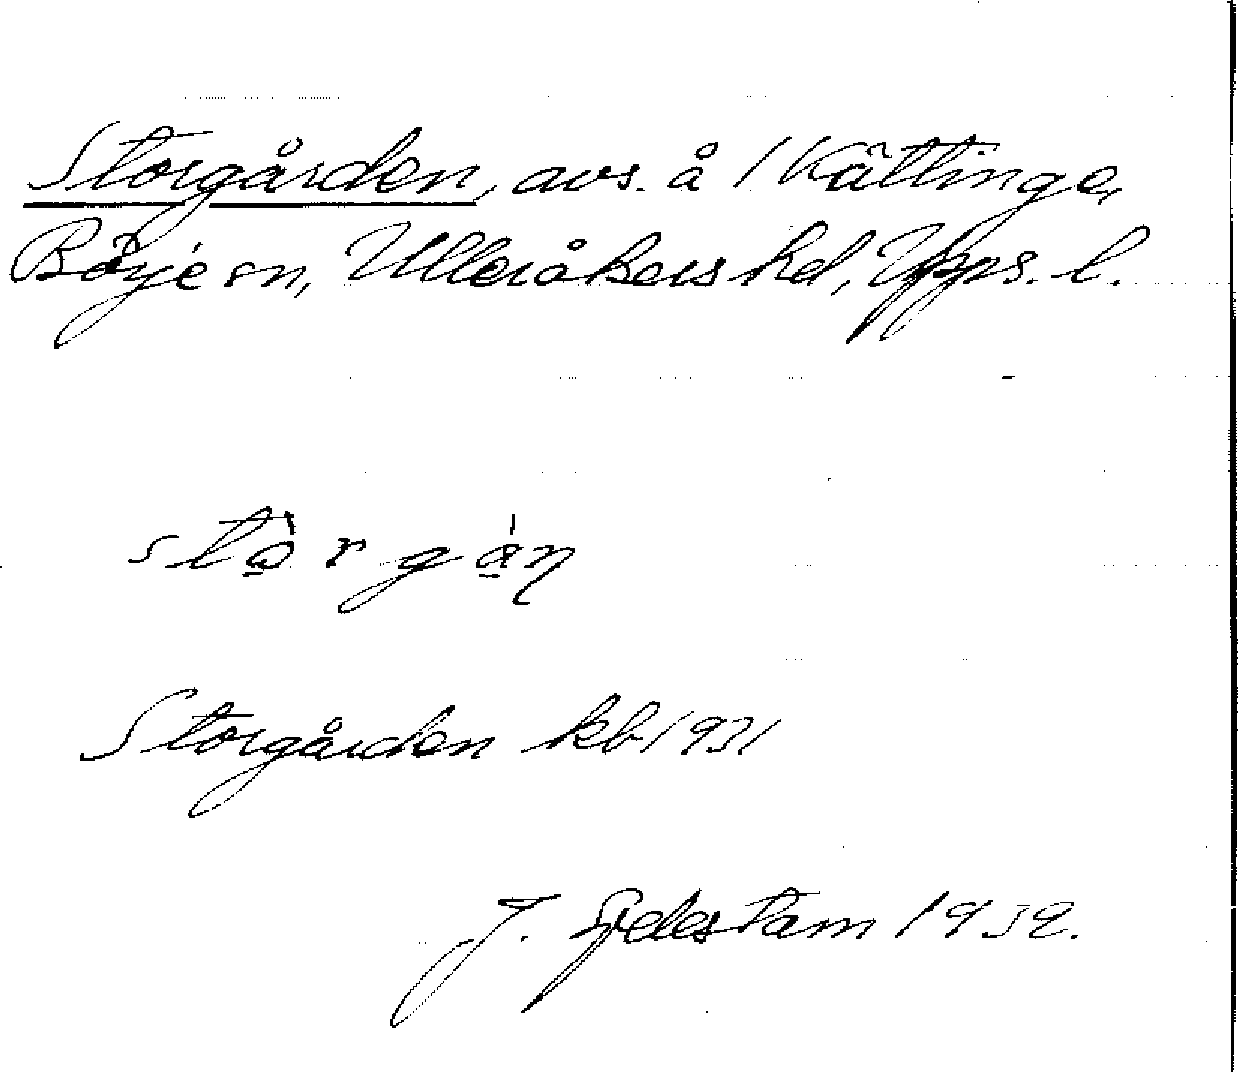 Storgården, avs. å 1 Kättinge,
Börje sn, Ulleråkers hd, Upps. l.
stò̱rgá̱ŋ
Storgården kb 1931
J. Sjdestam 1939.